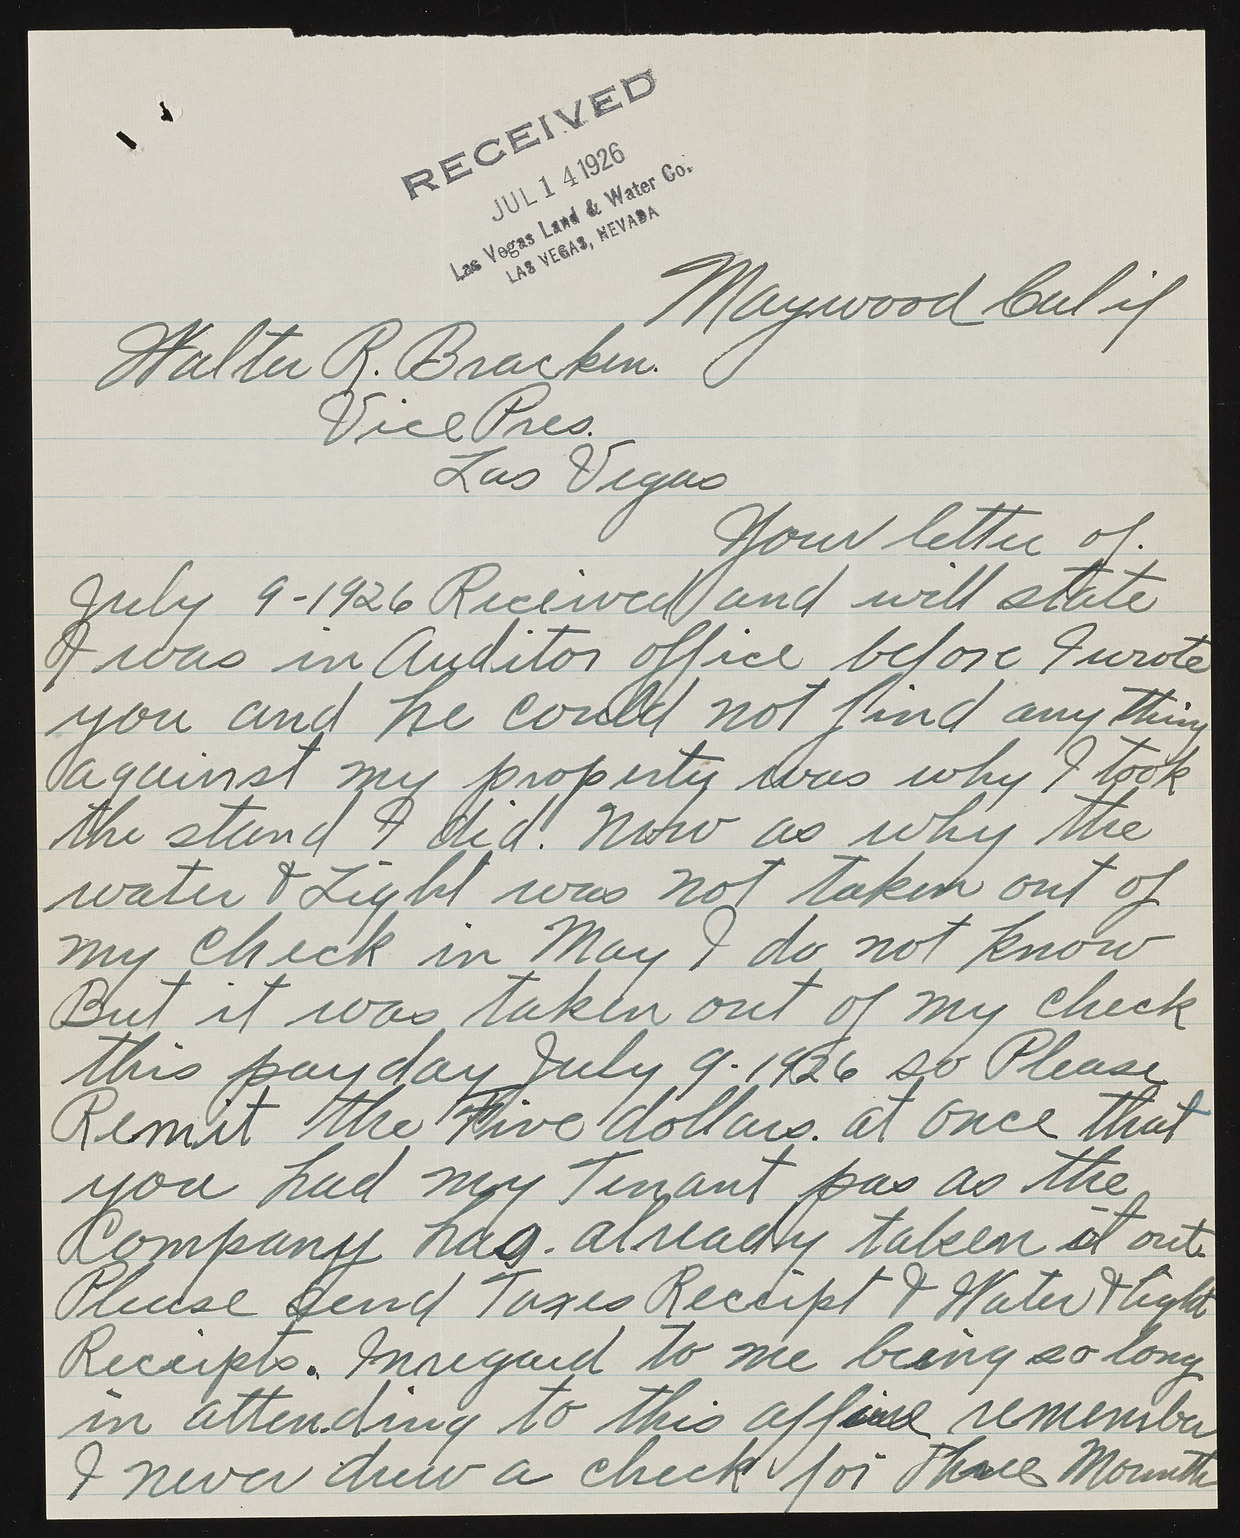 RECEIVED
JUL 14 1926
Las Vegas Land & Water Co.
LAS VEGAS, NEVADA
Maywood Calif
Walter R. Bracken.
Vice Pres.
Las Vegas
Your letter of.
July 9-1926 Received and will state
I was in Auditor office before I wrote
you and he could not find any thing
against my property was why I took
the stand I did. Now as why the
water & Light was not taken out of
my check in May I do not know
But it was taken out of my check
this payday July 9-1926 so Please
Remit the Five dollars. at once that
you had my Tenant pas as the
Company has. already taken it out.
Please send Taxes Receipt & Water & light
Receipts. Inregard to me being so long
in attending to this affine remember
I never drew a check for Three Mounth